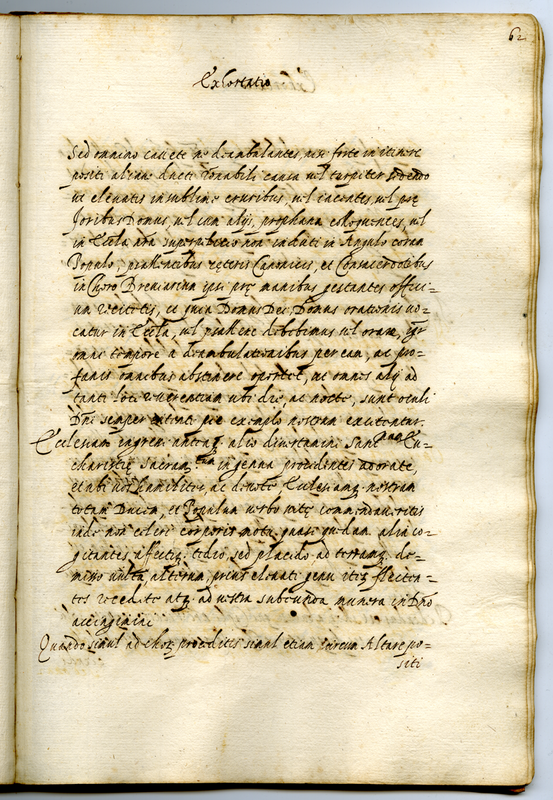 62
Exhortatio
Sed omnino cavete ne deambulantes, nisi forte in itinere
positi aliam ducti rationabili causa vel turpiter sedendo
ut elevatis in sublime cruribus, vel iacentes, vel pre
foribus Domus, vel cum alijs, prophana colloquentes, vel
in Eccla, non superpelliceo non induti in Angulo coram
Populo, psallentibus ceteris Canonicis, et Consacerdotibus
in Choro Breviarium ipsi prę manibus gestantes offici=
um recitetis, et quia Domus Dei, Domus orationis vo=
catur in Eccla, vel psallere debebimus vel orare, igr
omni tempore a deambulationibus per eam, ac pro=
fanis omnibus abstinere oportet, ut omnes alij ad
tanti loci reverentiam ubi die, ac nocte, sunt oculi
Dni semper intenti pre exemplo nostram excitentur.
Ecclesiam ingressi antequam alio divertamini Sanctam Eu=
charistię Sacram.tum in genua procidentes adorate,
et ubi vos humiliter, ac devote Ecclesiamq. nostram
totam Ducem, et Populum verbo satis commendaveritis
inde non celeri corporis motu quasi quędam alia co=
gitantes affectiq. tedio, sed placido ad terramq. de=
misso vultu, alterna, prius elevati genu iteq. flecten=
tes recedite atq. ad vestra subeunda munera in Dno
accingimini
Quando simul ad choq. proceditis simul etiam circum Altare po=
siti